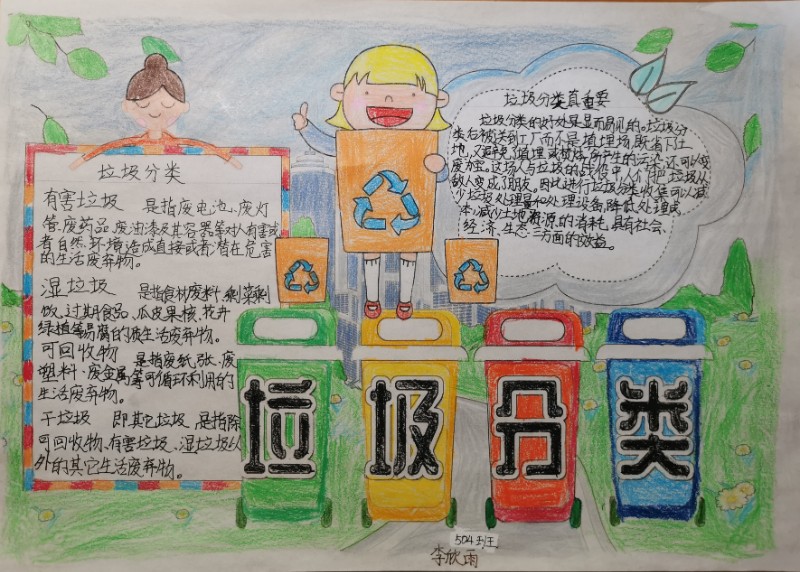 垃圾分类
有害垃圾 是指废电池、废灯
管、废药品、废油漆及其容器等对人有害或
者自然环境造成直接或者潜在危害
的生活废弃物。
湿垃圾 是指食材废料、剩菜剩
饭、过期食品、瓜皮果核、花卉
绿植等易腐的废生活废弃物。
可回收物 是指废纸张、废
塑料、废金属等可循环利用的
生活废弃物。
干垃圾 即其它垃圾,是指除
可回收物、有害垃圾、湿垃圾以
外的其它生活废弃物。
垃圾分类真重要
垃圾分类的好处是显而易见的。垃圾分
类后被送到工厂而不是填埋场,既省下土
地,又避免了填埋或焚烧所产生的污染,还可以变
废为宝。这场人与垃圾的战役中,人们把垃圾从
敌人变成了朋友。因此进行垃圾分类收集可以减
少垃圾处理量和处理设备,降低处理成
本,减少土地资源的消耗,具有社会、
经济、生态三方面的效益。
垃圾分类
504班
李欣雨